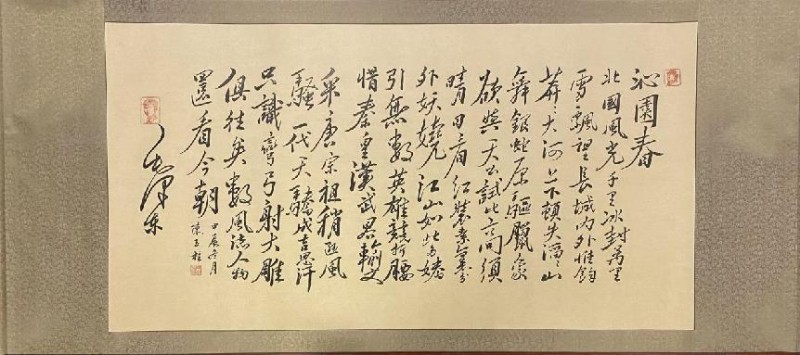 沁園春
北國風光千里冰封萬里
雪飄望長城內外惟餘
莽莽大河上下頓失滔滔山
舞銀蛇原驅臘象
欲與天公試比高須
晴日看紅裝素裹分
外妖嬈江山如此多嬌
引無數英雄競折腰
惜秦皇漢武略輸文
采唐宗宋祖稍遜風
騷一代天驕成吉思汗
只識彎弓射大雕
俱往矣數風流人物
還看今朝
毛澤東
甲辰冬月